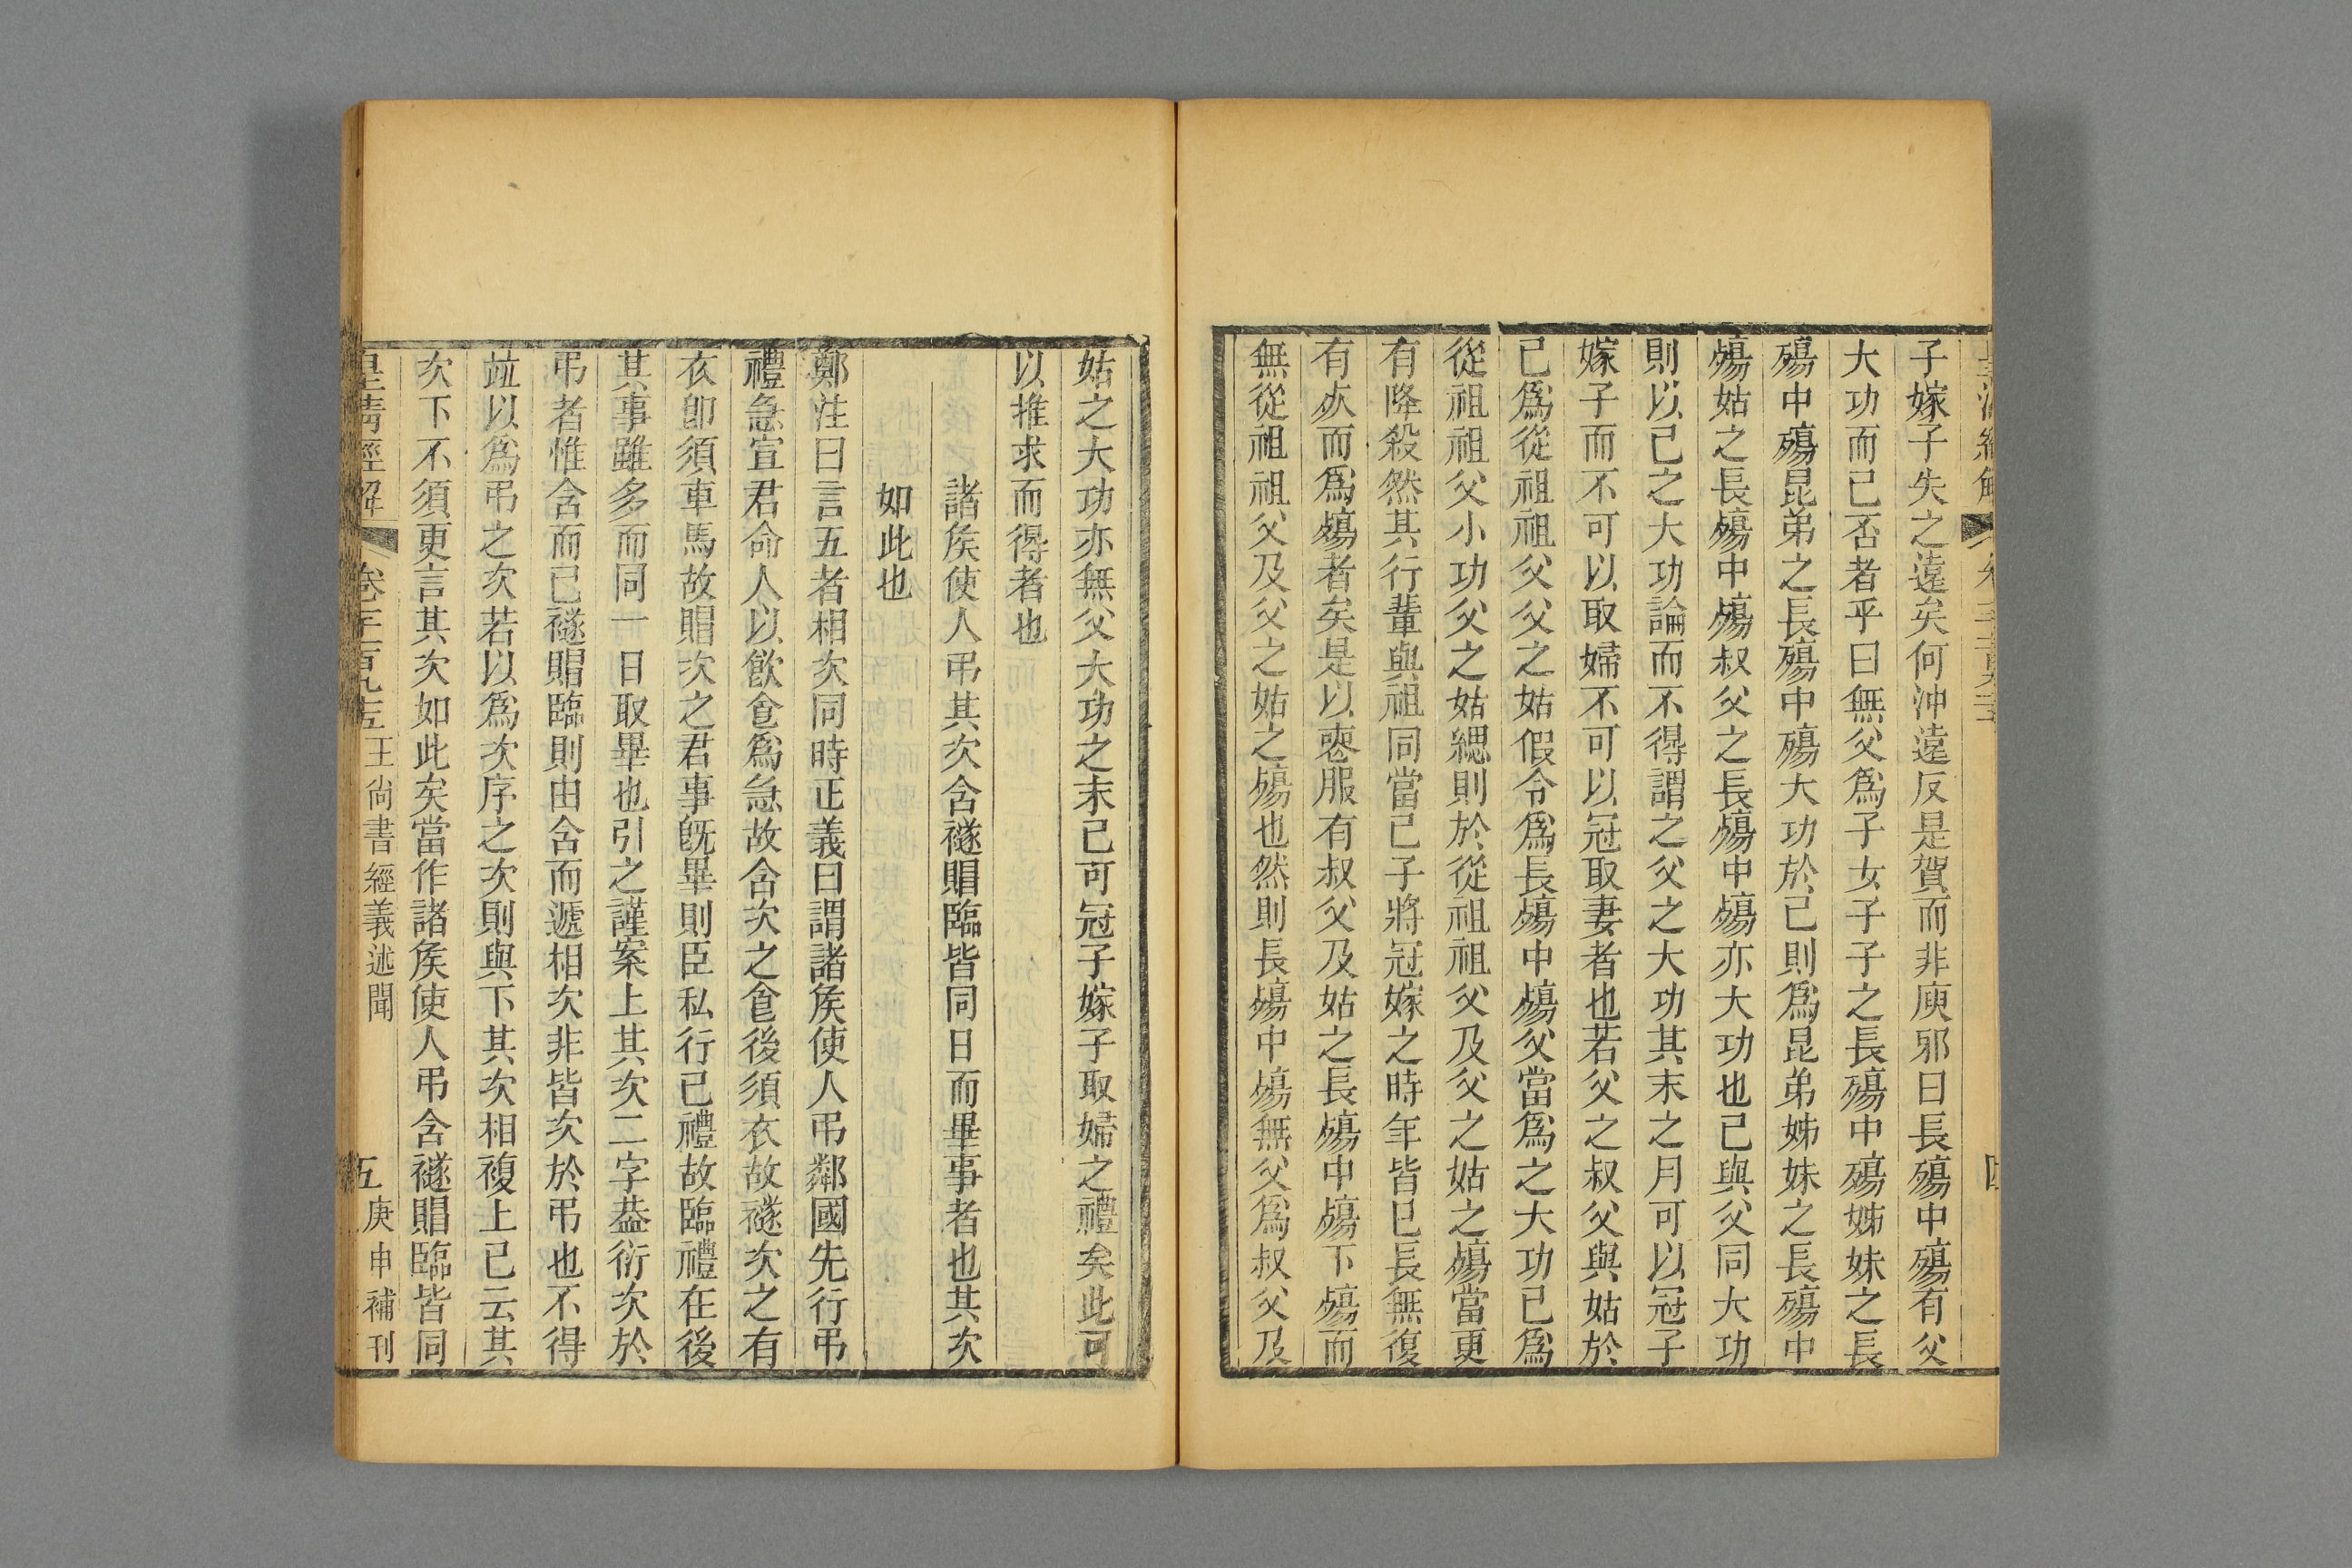 子嫁子失之遠矣何沖遠反是賀而非庾邪曰長殤中殤有父
大功而已否者乎曰無父爲子女子子之長殤中殤姊妹之長
殤中殤昆弟之長殤中殤大功於己則爲昆弟姊妹之長殤中
殤姑之長殤中殤叔父之長殤中殤亦大功也己與父同大功
則以己之大功論而不得謂之父之大功其末之月可以冠子
嫁子而不可以取婦不可以冠取妻者也若父之叔父與姑於
己爲從祖祖父父之姑假令爲長殤中殤父當爲之大功己爲
從祖祖父小功父之姑緦則於從祖祖父及父之姑之殤當更
有降殺然其行輩與祖同當己子將冠嫁之時年皆已長無復
有夭而爲殤者矣是以喪服有叔父及姑之長殤中殤下殤而
無從祖祖父及父之姑之殤也然則長殤中殤無父爲叔父及
姑之大功亦無父大功之末己可冠子嫁子取婦之禮矣此可
以推求而得者也
諸矦使人弔其次含襚賵臨皆同日而畢事者也其次
如此也
鄭注曰言五者相次同時正義曰謂諸矦使人弔鄰國先行弔
禮急宣君命人以飮食爲急故含次之食後須衣故襚次之有
衣卽須車馬故賵次之君事旣畢則臣私行己禮故臨禮在後
其事雖多而同一日取畢也引之謹案上其次二字葢衍次於
弔者惟含而已襚賵臨則由含而遞相次非皆次於弔也不得
竝以爲弔之次若以爲次序之次則與下其次相複上已云其
次下不須更言其次如此矣當作諸矦使人弔含襚賵臨皆同
皇淸經解
王尙書經義述聞
五
庚申補刊